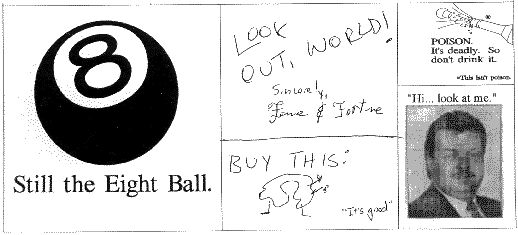 8
Still the Eight Ball.
LOOK
OUT, WORLD!
Sincerely,
Fame & Fortune
BUY THIS:
"It's good"
POISON.
It's deadly. So
don't drink it.
*This isn't poison.
"Hi... look at me."